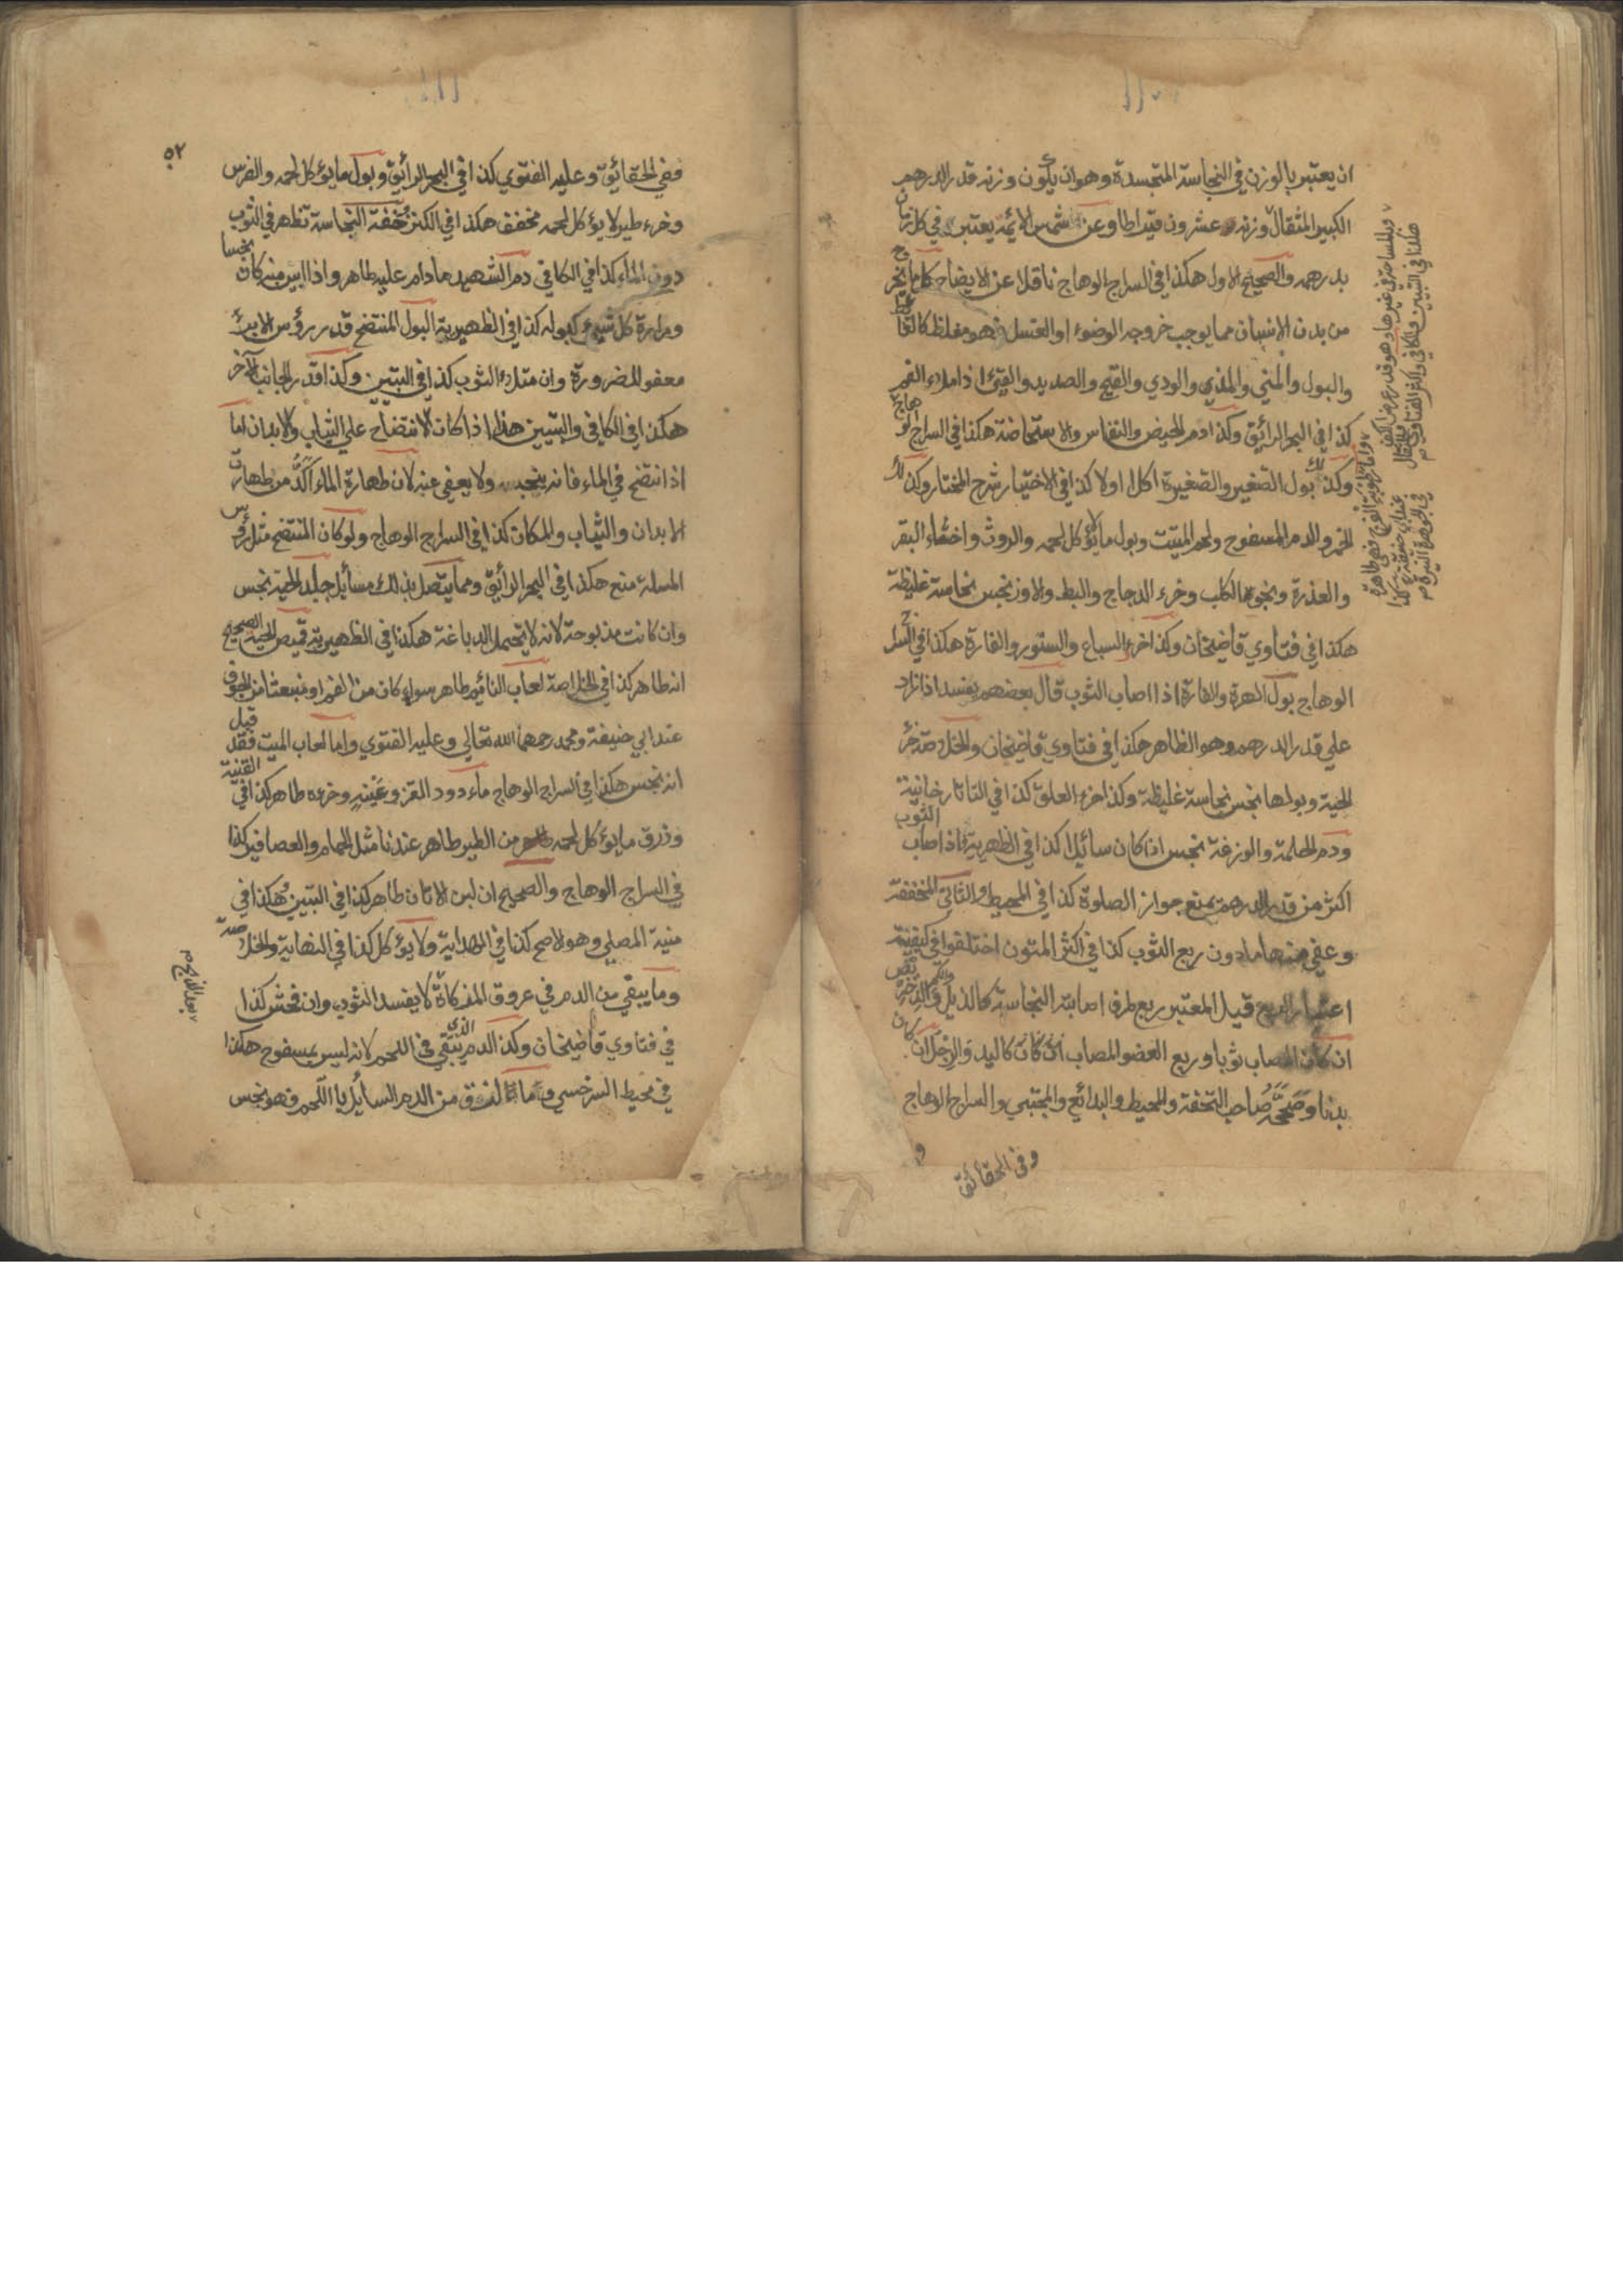 ان يعتبر بالوزن في النجاسة المتجسدة وهو ان يكون وزنه قدر الدرهم
الكبير المثقال وزنه عشرون قيراطا وعن شمس الائمة يعتبر في كل زمان
بدرهمه والصحيح الاول هكذا في السراج الوهاج ناقلا عن الايضاح كل ما يخرج
من بدن الانسان مما يوجب خروجه الوضوء او الغسل فهو مغلظ كالغائط
والبول والمني والمذي والودي والقيح والصديد والقيئ اذا ملاء الفم
كذا في البحر الرائق وكذا دم الحيض والنفاس والاستحاضة هكذا في السراج الوهاج
وكذا بول الصغير والصغيرة اكلا اولا كذا في الاختيار شرح المختار وكذلك
الخمر والدم المسفوح ولحم الميتت وبول ما لا يؤكل لحمه والروث واخثاء البقر
والعذرة ونجو الكلب وخرء الدجاج والبط والاوز نجس نجاسة غليظة
هكذا في فتاوي قاضيخان وكذا خرء السباع والسنور والفارة هكذا في السراج
الوهاج بول الهرة والفارة اذا اصاب الثوب قال بعضهم يفسد اذا زاد
علي قدر الدرهم وهو الظاهر هكذا في فتاوي قاضيخان والخلاصة خرء
الحية وبولها نجس نجاسة غليظة وكذا خرء العلق كذا في التاتارخانية
ودم الحلمة والوزغة نجس اذا كان سائلا كذا في الظهيرية فاذا اصاب الثوب
اكثر من قدر الدرهم يمنع جواز الصلوة كذا في المحيط والثاني المخففة
وعفي منها مادون ربع الثوب كذا في اكثر المتون اختلفوا في كيفية
اعتبار الربع قيل المعتبر ربع طرف اصابته النجاسة كالذيل والكم والدخريص
ان كان المصاب ثوبا وربع العضو المصاب كاليد والرجل ان كان
بدنا وصححه صاحب التحفة والمحيط والبدائع والمجتبي والسراج الوهاج
وفي الحقائق
وبالمساحة في غيرها وهو قدر عرض الكف
هكذا في التبيين والكافي واكثر الفتاوي
واما رطوبة الفرج فهي طاهرة
عند ابي حنيفة هكذا
في الجوهرة النيرة
٥٢
ففي الحقائق وعليه الفتوي كذا في البحر الرائق وبول ما يؤكل لحمه والفرس
وخرء طير لا يؤكل لحمه مخفف هكذا في الكنز خفة النجاسة تظهر في الثوب
دون الماء كذا في الكافي دم الشهيد مادام عليه طاهر واذا ابين منه كان نجسا
ومرارة كل شيء كبوله كذا في الظهيرية البول المنتضح قدر رؤس الابر
معفو للضرورة وان امتلاء الثوب كذا في التبيين وكذا قدر الجانب الآخر
هكذا في الكافي والتبيين هذا اذا كان الانتضاح علي الثياب والابدان اما
اذا انتضح في الماء فانه ينجسه ولا يعفي عنه لان طهارة الماء آكد من طهارة
الابدان والثياب والمكان كذا في السراج الوهاج ولو كان المنتضح مثل رؤس
المسلة منع هكذا في البحر الرائق ومما يتصل بذلك مسائل جلد الحية نجس
وان كانت مذبوحة لانه لا يتحمل الدباغة هكذا في الظهيرية قميص الحية الصحيح
انه طاهر كذا في الخلاصة لعاب النائم طاهر سواء كان من الفم او منبعثا من الجوف
عند ابي حنيفة ومحمد رحمهما الله تعالي وعليه الفتوي واما لعاب الميت فقد قيل
انه نجس هكذا في السراج الوهاج ماء دود القز وعينه وخرءه طاهر كذا في القنية
وذرق ما يؤكل لحمه من الطير طاهر عندنا مثل الحمام والعصافير كذا
في السراج الوهاج والصحيح ان لبن الاتان طاهر كذا في التبيين هكذا في
منية المصلي وهو الاصح كذا في الهداية ولا يؤكل كذا في النهاية والخلاصة
وما يبقي من الدم في عروق المذكاة لا يفسد الثوب وان فحش كذا
في فتاوي قاضيخان وكذا الدم الذي يبقي في اللحم لانه ليس بمسفوح هكذا
في محيط السرخسي وما لزق من الدم السائل با اللحم فهو نجس
بعد الذبح